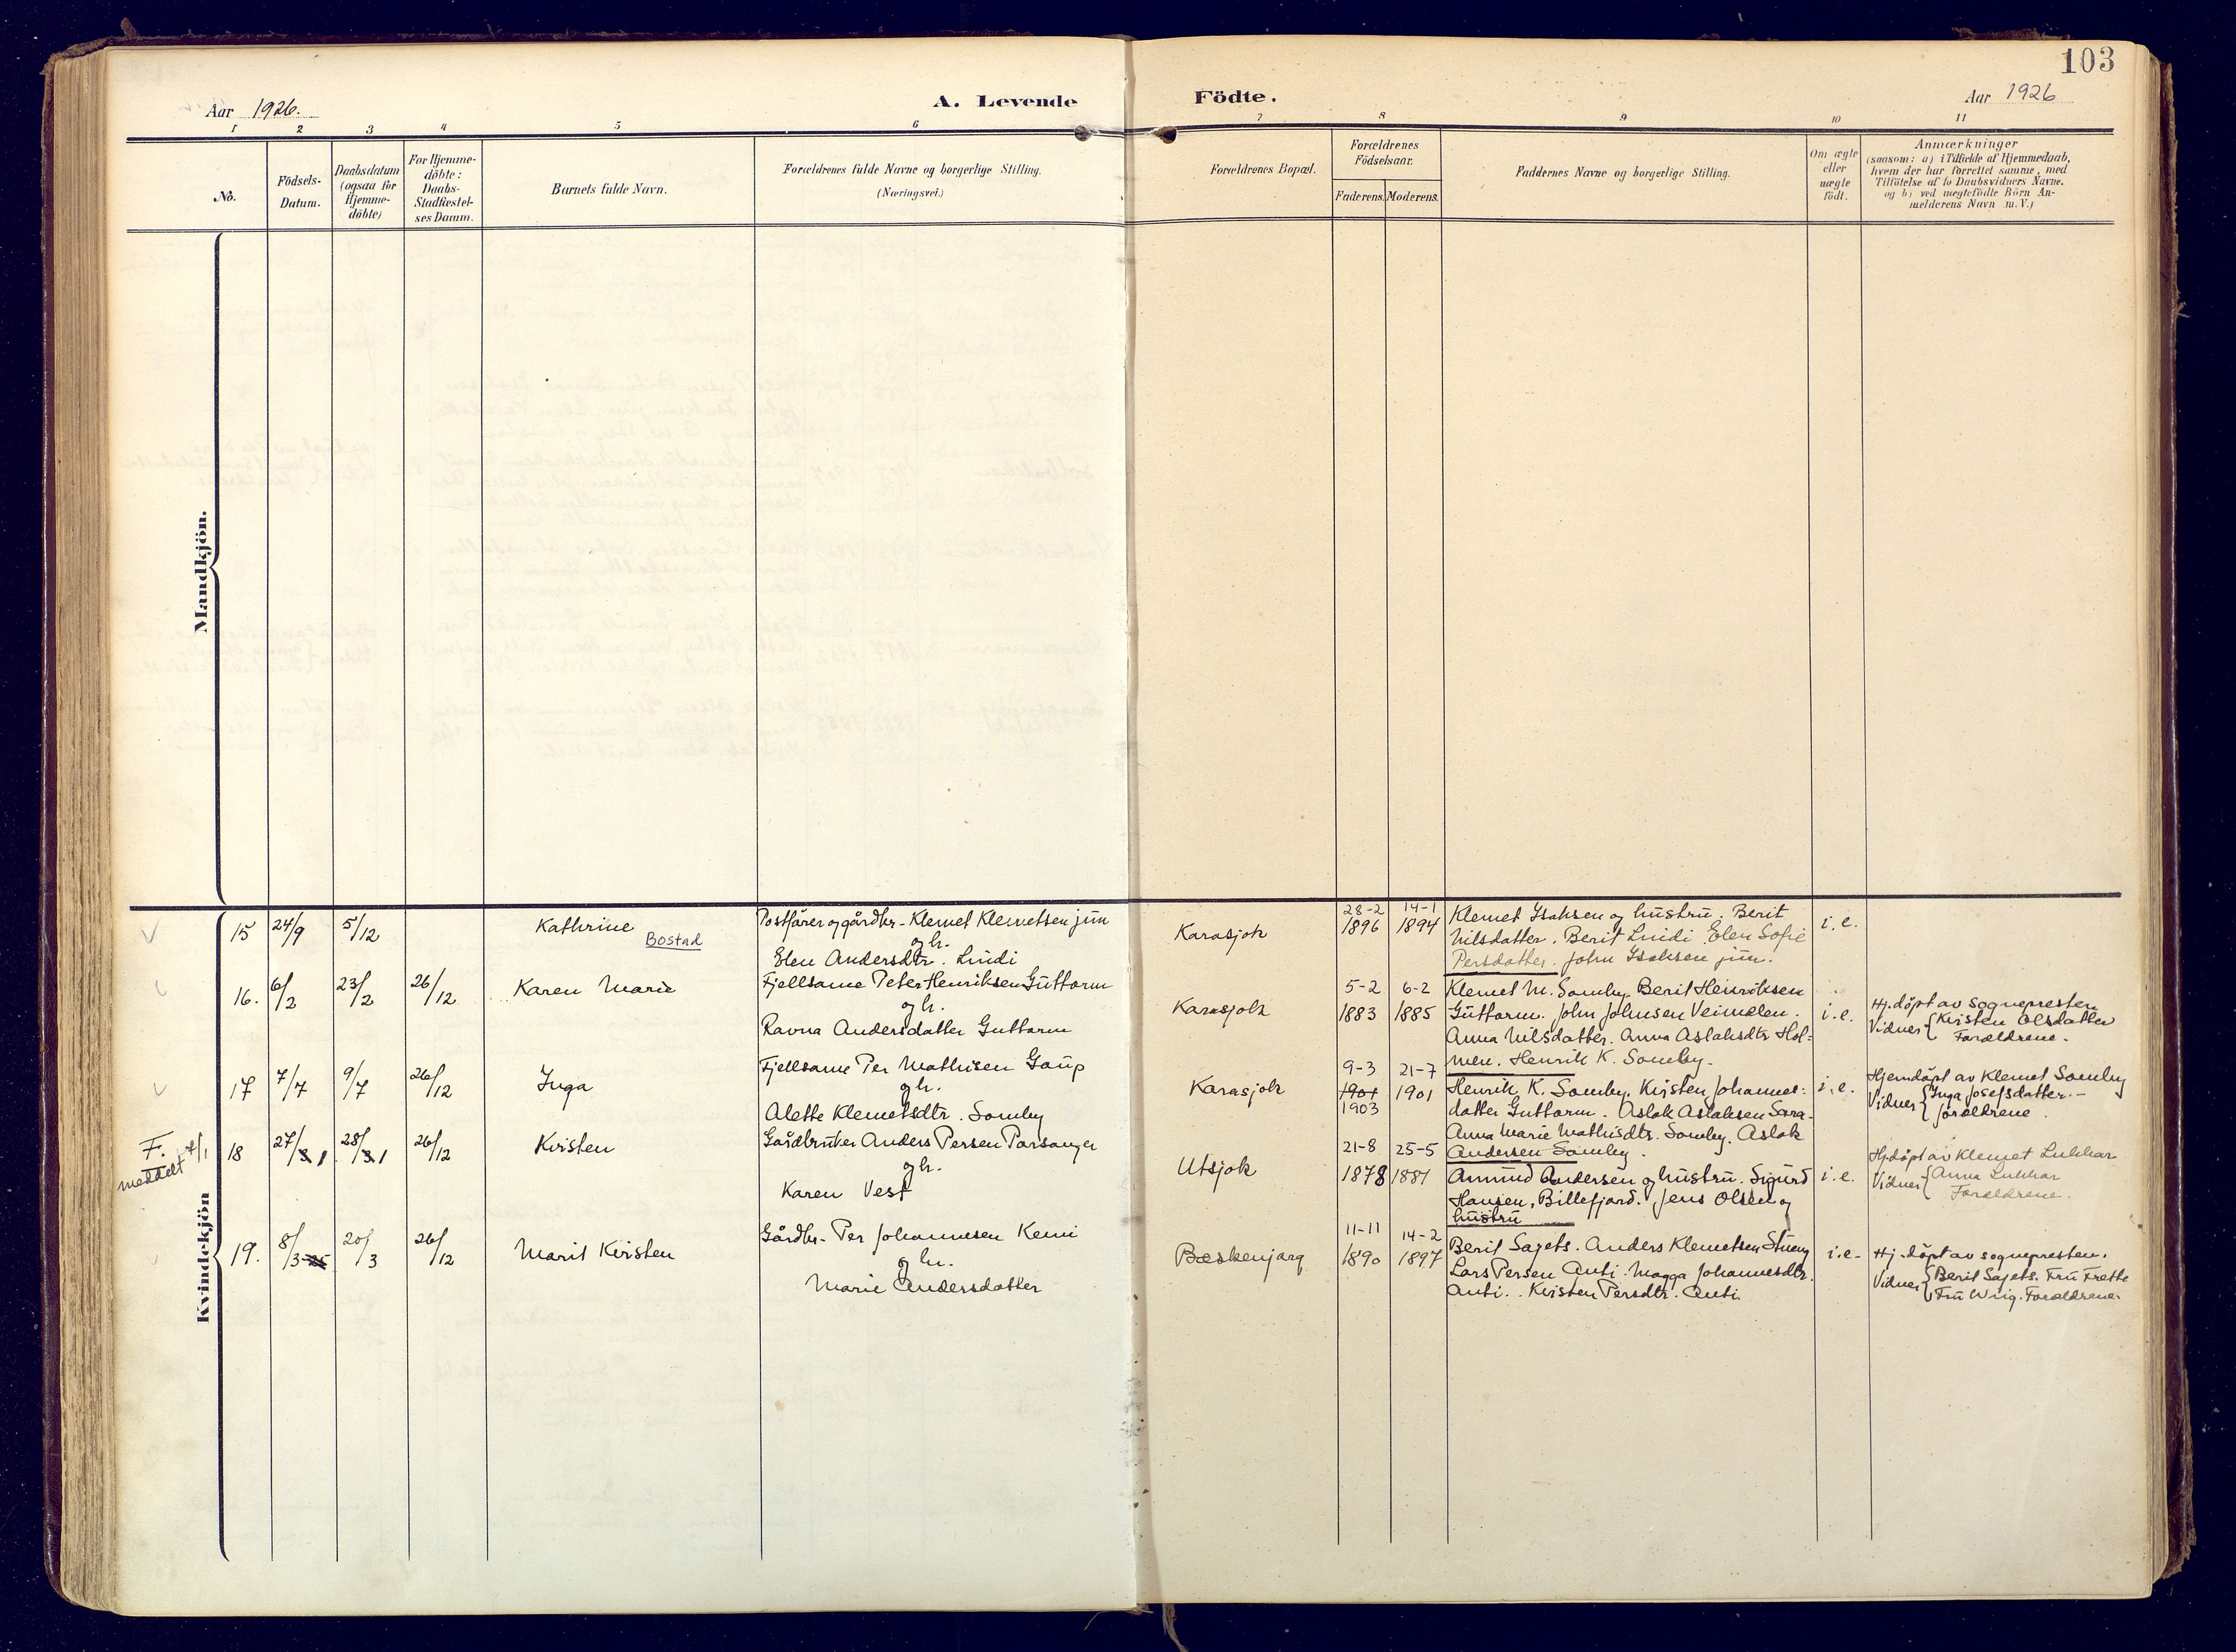 103
Aar 1926.
A. Levende
Födte.
Aar 1926
1 2 3 4 5 6 7 8 9 10 11
No.
Födsels-
Datum.
Daabsdatum
(ogsaa for
Hjemme-
döbte)
For Hjemme-
döbte:
Daabs-
Stadfæstel-
ses Datum.
Barnets fulde Navn.
Forældrenes fulde Navne og borgerlige Stilling.
(Næringsvei.)
Forældrenes Bopæl.
Forældrenes
Födselsaar.
Faderens.
Moderens.
Faddernes Navne og borgerlige Stilling.
Om ægte
eller
uægte
födt.
Anmærkninger
(saasom: a) i Tilfælde af Hjemmedaab,
hvem der har forrettet samme, med
Tilföielse af to Daabsvidners Navne.
og b) ved uægtefödte Börn An-
melderens Navn m.V.)
Mandkjön.
Kvindekjön
15 24/9 5/12
Kathrine
Bostad
Postfører og gårdbr. Klemet Klemetsen jun
og h.
Elen Andersdtr. Lindi
Karasjok
28-2
1896
14-1
1894
Klemet Isaksen og hustru. Berit
Nilsdatter. Berit Lindi. Elen Sofie
Persdatter. John Isaksen jun.
i.e.
16. 6/2 23/2 26/12
Karen Marie
Fjellsame Peter Henriksen Guttorm
og h.
Ravna Andersdatter Guttorm
Karasjok
5-2
1883
6-2
1885
Klemet M. Somby. Berit Henriksen
Guttorm. John Johnsen Veimelen.
Anna Nilsdatter. Anna Aslaksdtr Hol-
men. Henrik K. Somby.
i.e.
Hj. döpt av sognepresten
Vidner { Kirsten Olsdatter
Forældrene.
17 7/7 9/7 26/12
Inga
Fjellsame Per Mathisen Gaup
og h.
Alette Klemetsdtr. Somby
Karasjok
9-3
1901
1903
21-7
1901
Henrik K. Somby. Kirsten Johannes-
datter Guttorm. Aslak Aslaksen Sara.
Anna Marie Mathisdtr. Somby. Aslak
Andersen Somby.
i.e.
Hjemdöpt av Klemet Somby
Vidner { Inga Josefsdatter.-
forældrene.
F.
meddelt
18 27/3 1 28/3 1 26/12
Kirsten
Gårdbruker Anders Persen Porsanger
og h.
Karen Vest
Utsjok
21-8
1878
25-5
1881
Amund Andersen og hustru. Sigurd
Hansen, Billefjord. Jens Olsen og
hustru
i.e.
Hj.döpt av Klemet Lukkar
Vidner { Anna Lukkar
Forældrene.
19. 8/3 25 20/3 26/12
Marit Kirsten
Gårdbr. Per Johannesen Kemi
og h.
Marie Andersdatter
Bæskenjarg
11-11
1890
14-2
1897
Berit Sagets. Anders Klemetsen Stueng
Lars Persen Anti. Magga Johannesdtr.
Anti. Kirsten Persdtr. Anti.
i.e.
Hj. döpt av sognepresten.
Vidner { Berit Sagets. Fru Frette
Fru Wiig. Forældrene.